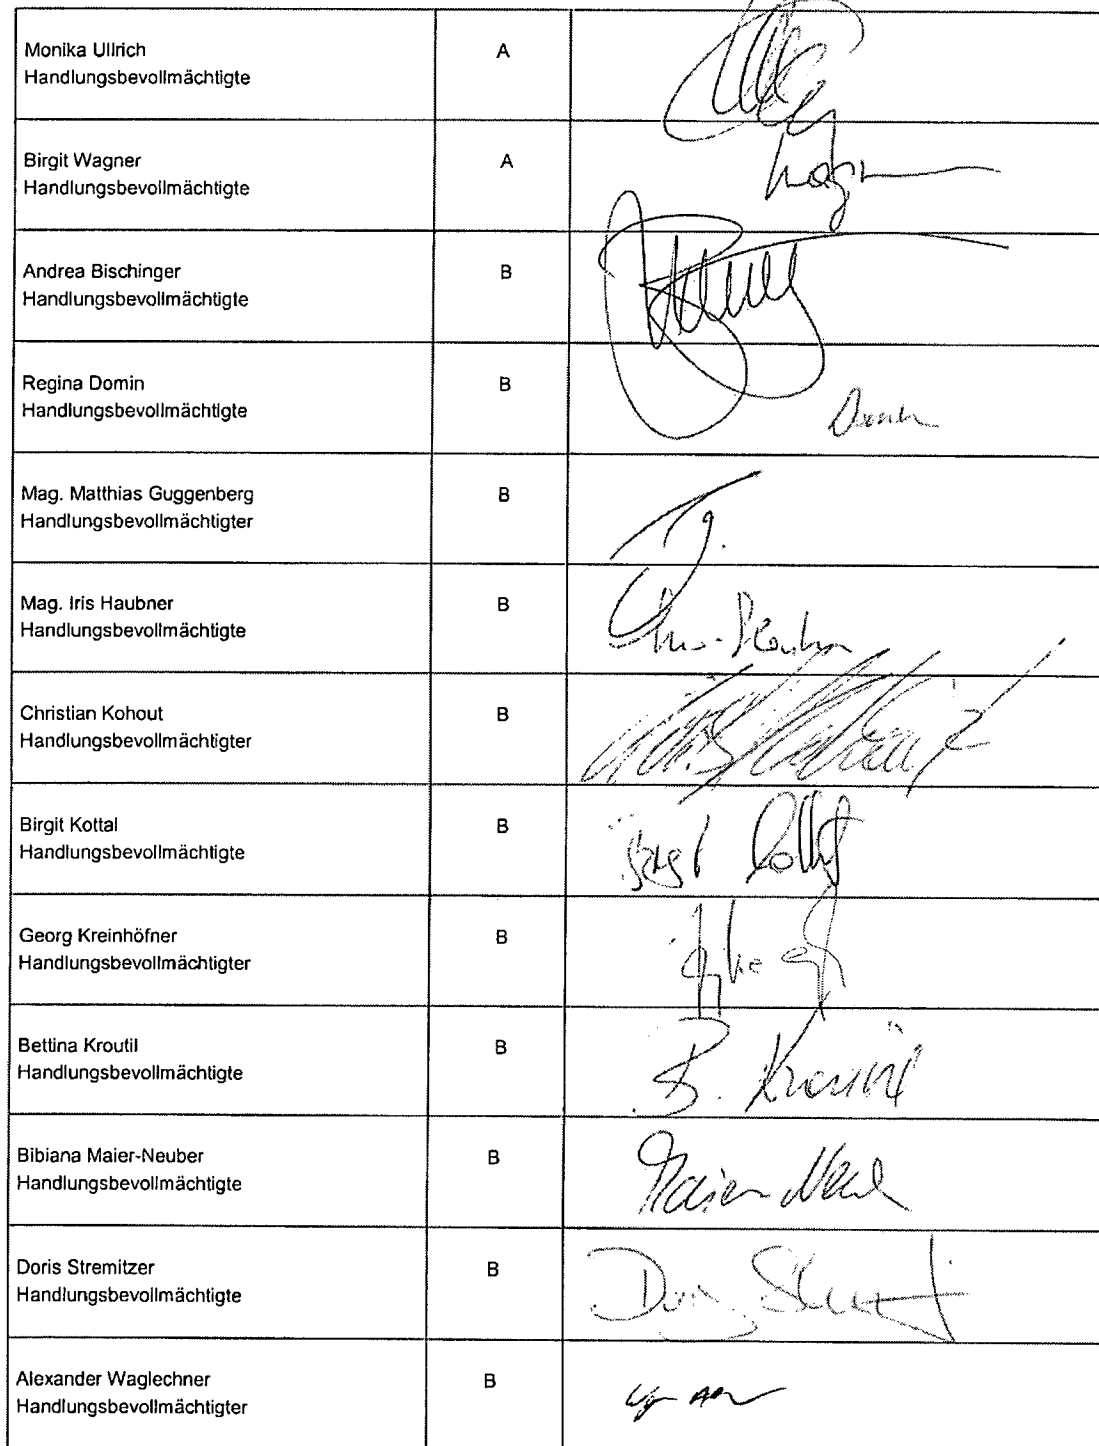 Monika Ullrich A
Handlungsbevollmächtigte
Birgit Wagner A
Handlungsbevollmächtigte
Wagner
Andrea Bischinger B
Handlungsbevollmächtigte
Regina Domin B
Handlungsbevollmächtigte
Domin
Mag. Matthias Guggenberg B
Handlungsbevollmächtigter
Mag. Iris Haubner B
Handlungsbevollmächtigte
Christian Kohout B
Handlungsbevollmächtigter
Birgit Kottal B
Handlungsbevollmächtigte
Georg Kreinhöfner B
Handlungsbevollmächtigter
Bettina Kroutil B
Handlungsbevollmächtigte
B. Kroutil
Bibiana Maier-Neuber B
Handlungsbevollmächtigte
Doris Stremitzer B
Handlungsbevollmächtigte
Alexander Waglechner B
Handlungsbevollmächtigter